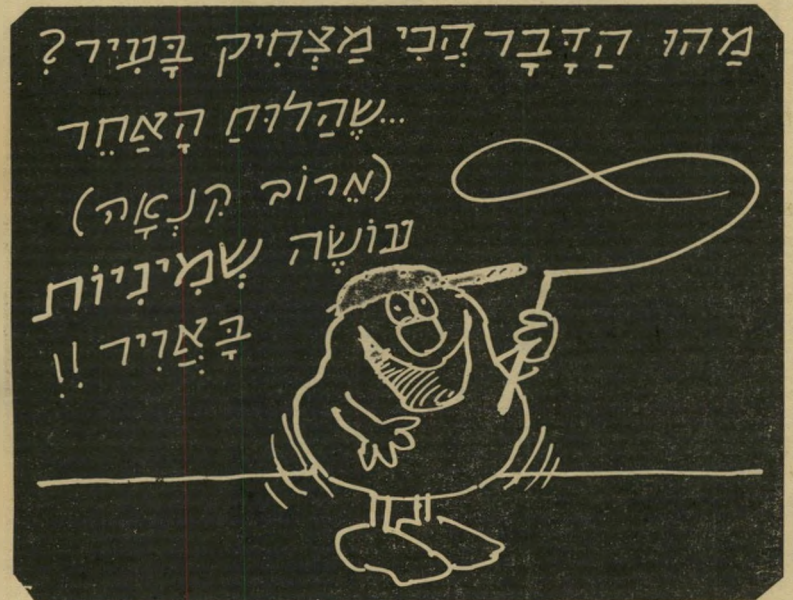 מַהוּ הַדָּבָר הֲכִי מַצְחִיק בָּעִיר?
...שֶׁהַלוּחַ הָאַחֵר
(מֵרוֹב קִנְאָה)
עוֹשֶׂה שְׁמִינִיוֹת
בָּאֲוִיר !!